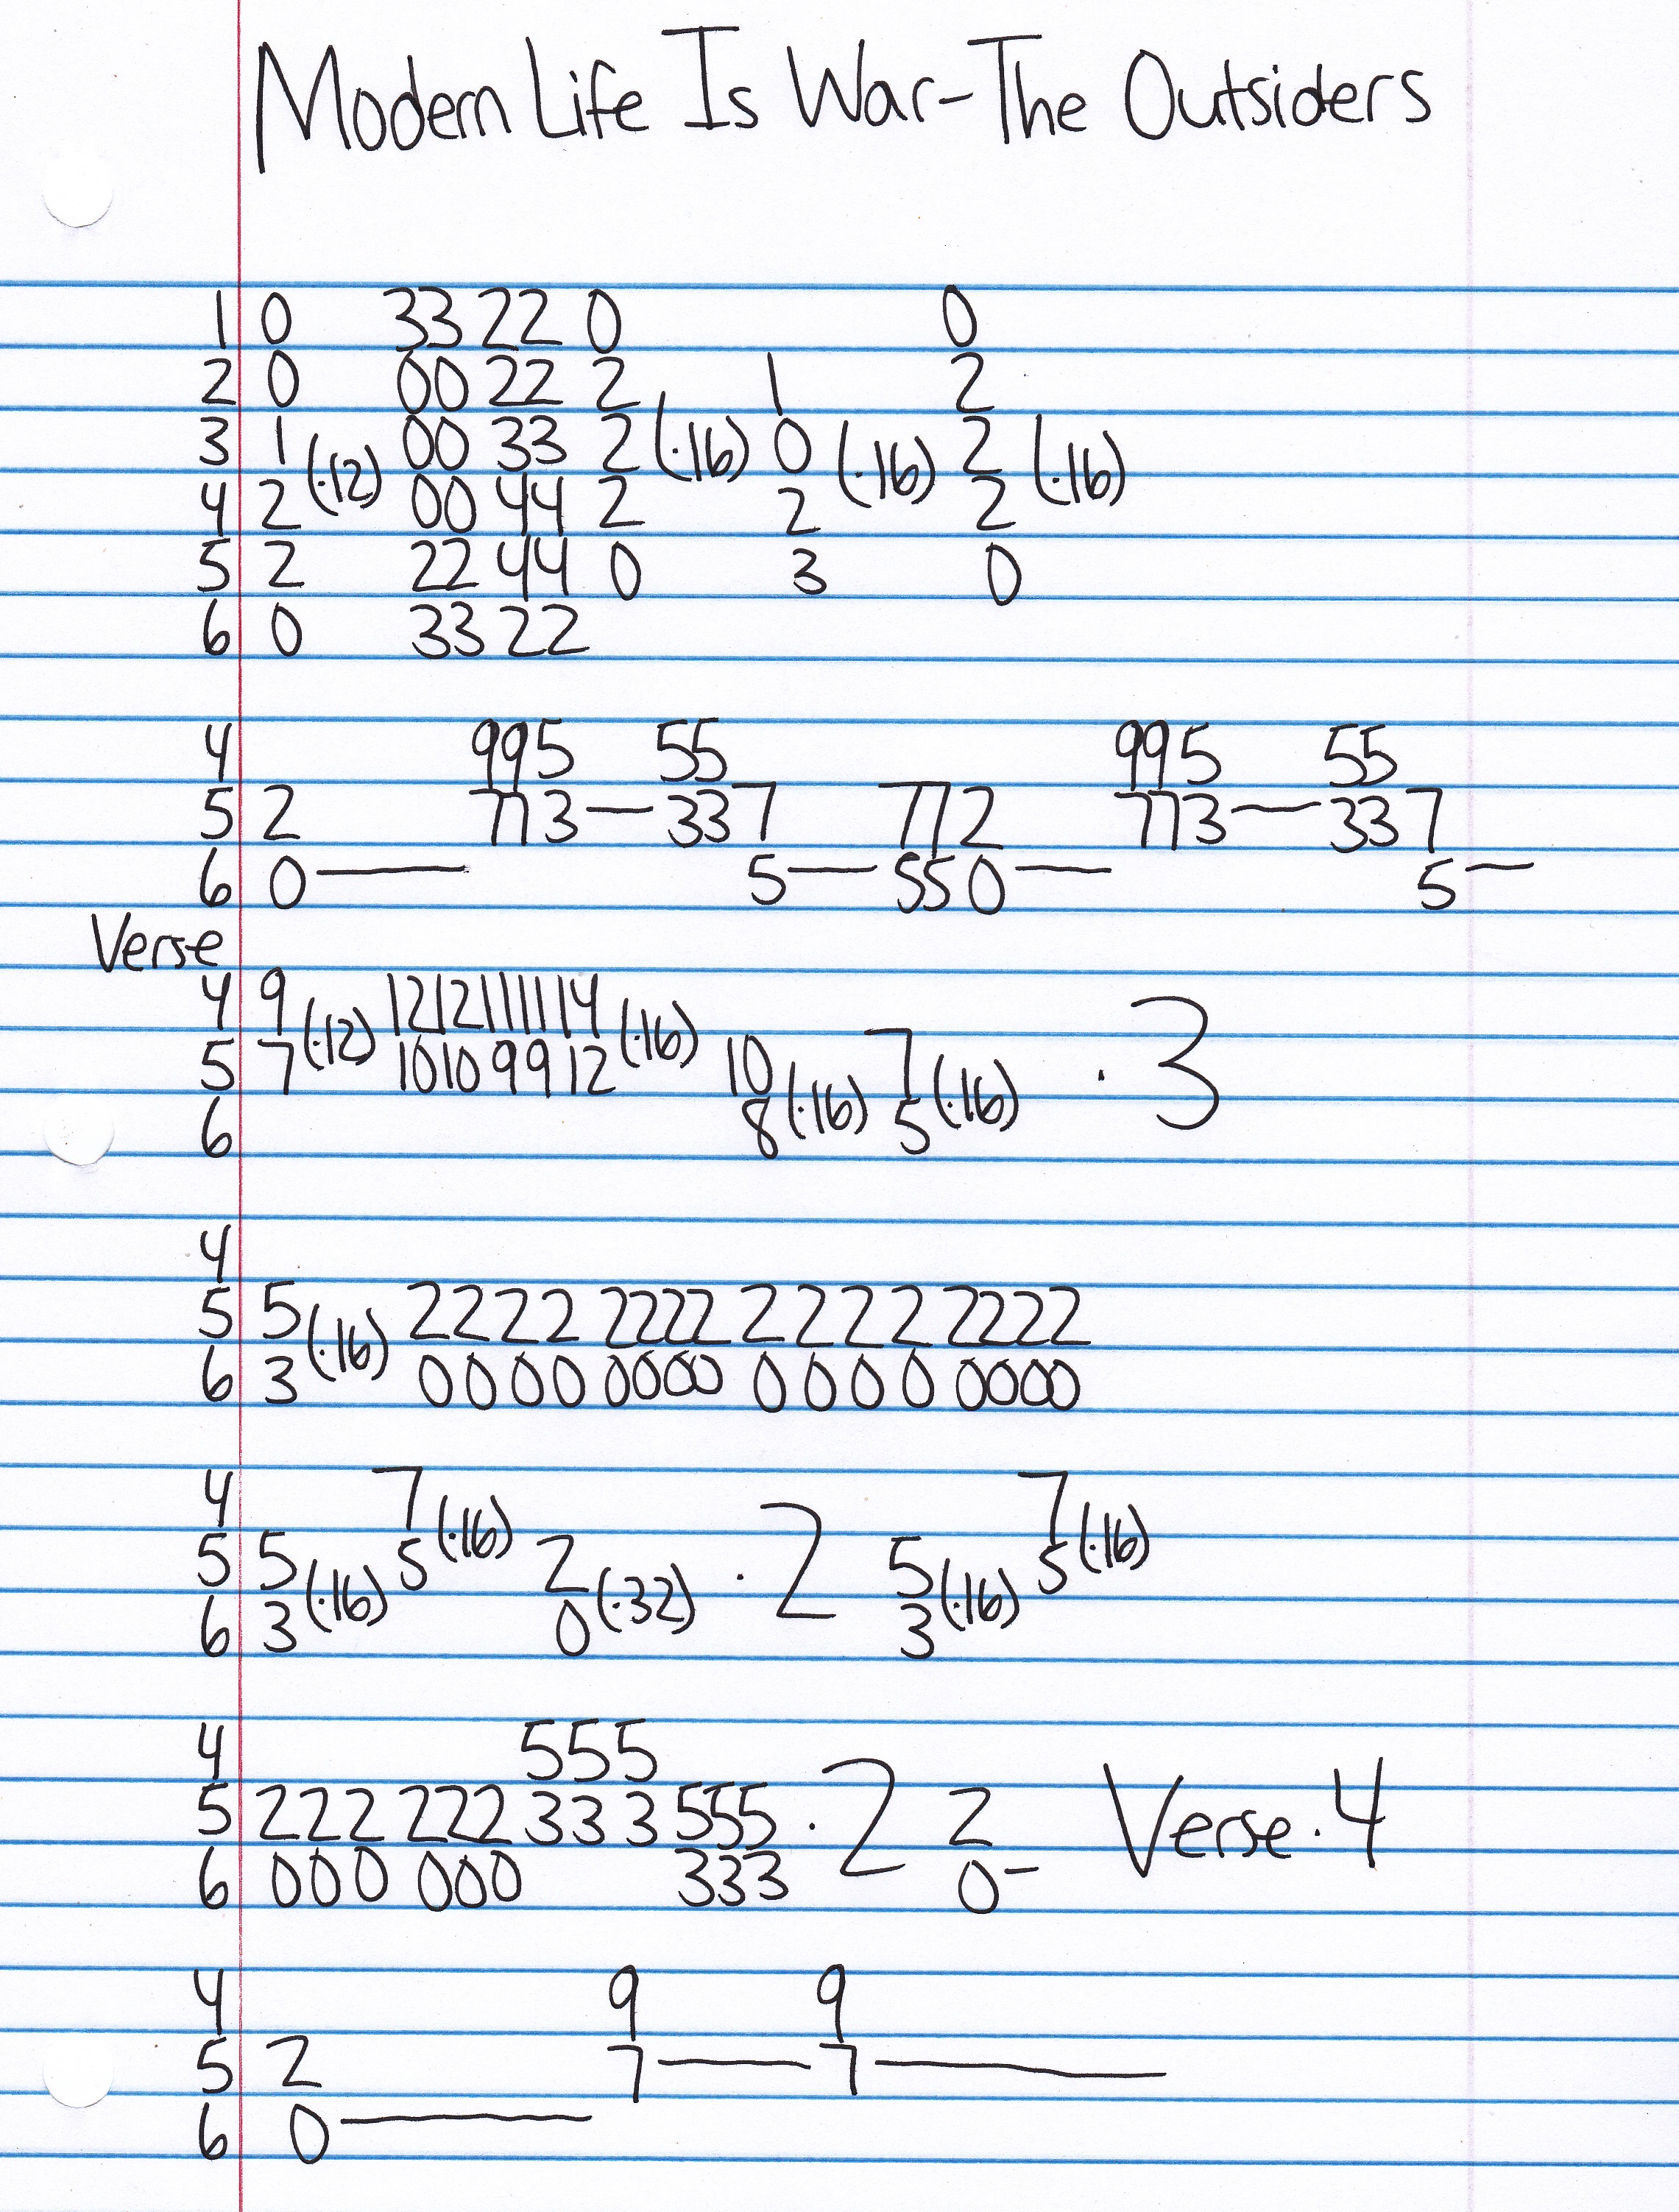 Modern Life Is War-The Outsiders
1 0 33 22 0 0
2 0 00 22 2 1 2
3 1 (·12) 00 33 2 (·16) 0 (·16) 2 (·16)
4 2 00 44 2 2 2
5 2 22 44 0 3 0
6 0 33 22
4 995 55 995 55
5 2 773 — 337 772 773 — 337
6 0 — 5 — 550 — 5 —
Verse
4 9 (·12) 1212111114 (·16) · 3
5 7 1010 9912 10 7
6 8 (·16) 5 (·16)
4
5 5 (·16) 2222 2222 2222 2222
6 3 0000 0000 0000 0000
4 7 (·16) 7 (·16)
5 5 (·16) 5 2 (·32) · 2 5 (·16) 5
6 3 0 3
4 555
5 222 222 333 555 · 2 2 Verse · 4
6 000 000 333 0 –
4 9 9
5 2 7 — 7 —
6 0 —